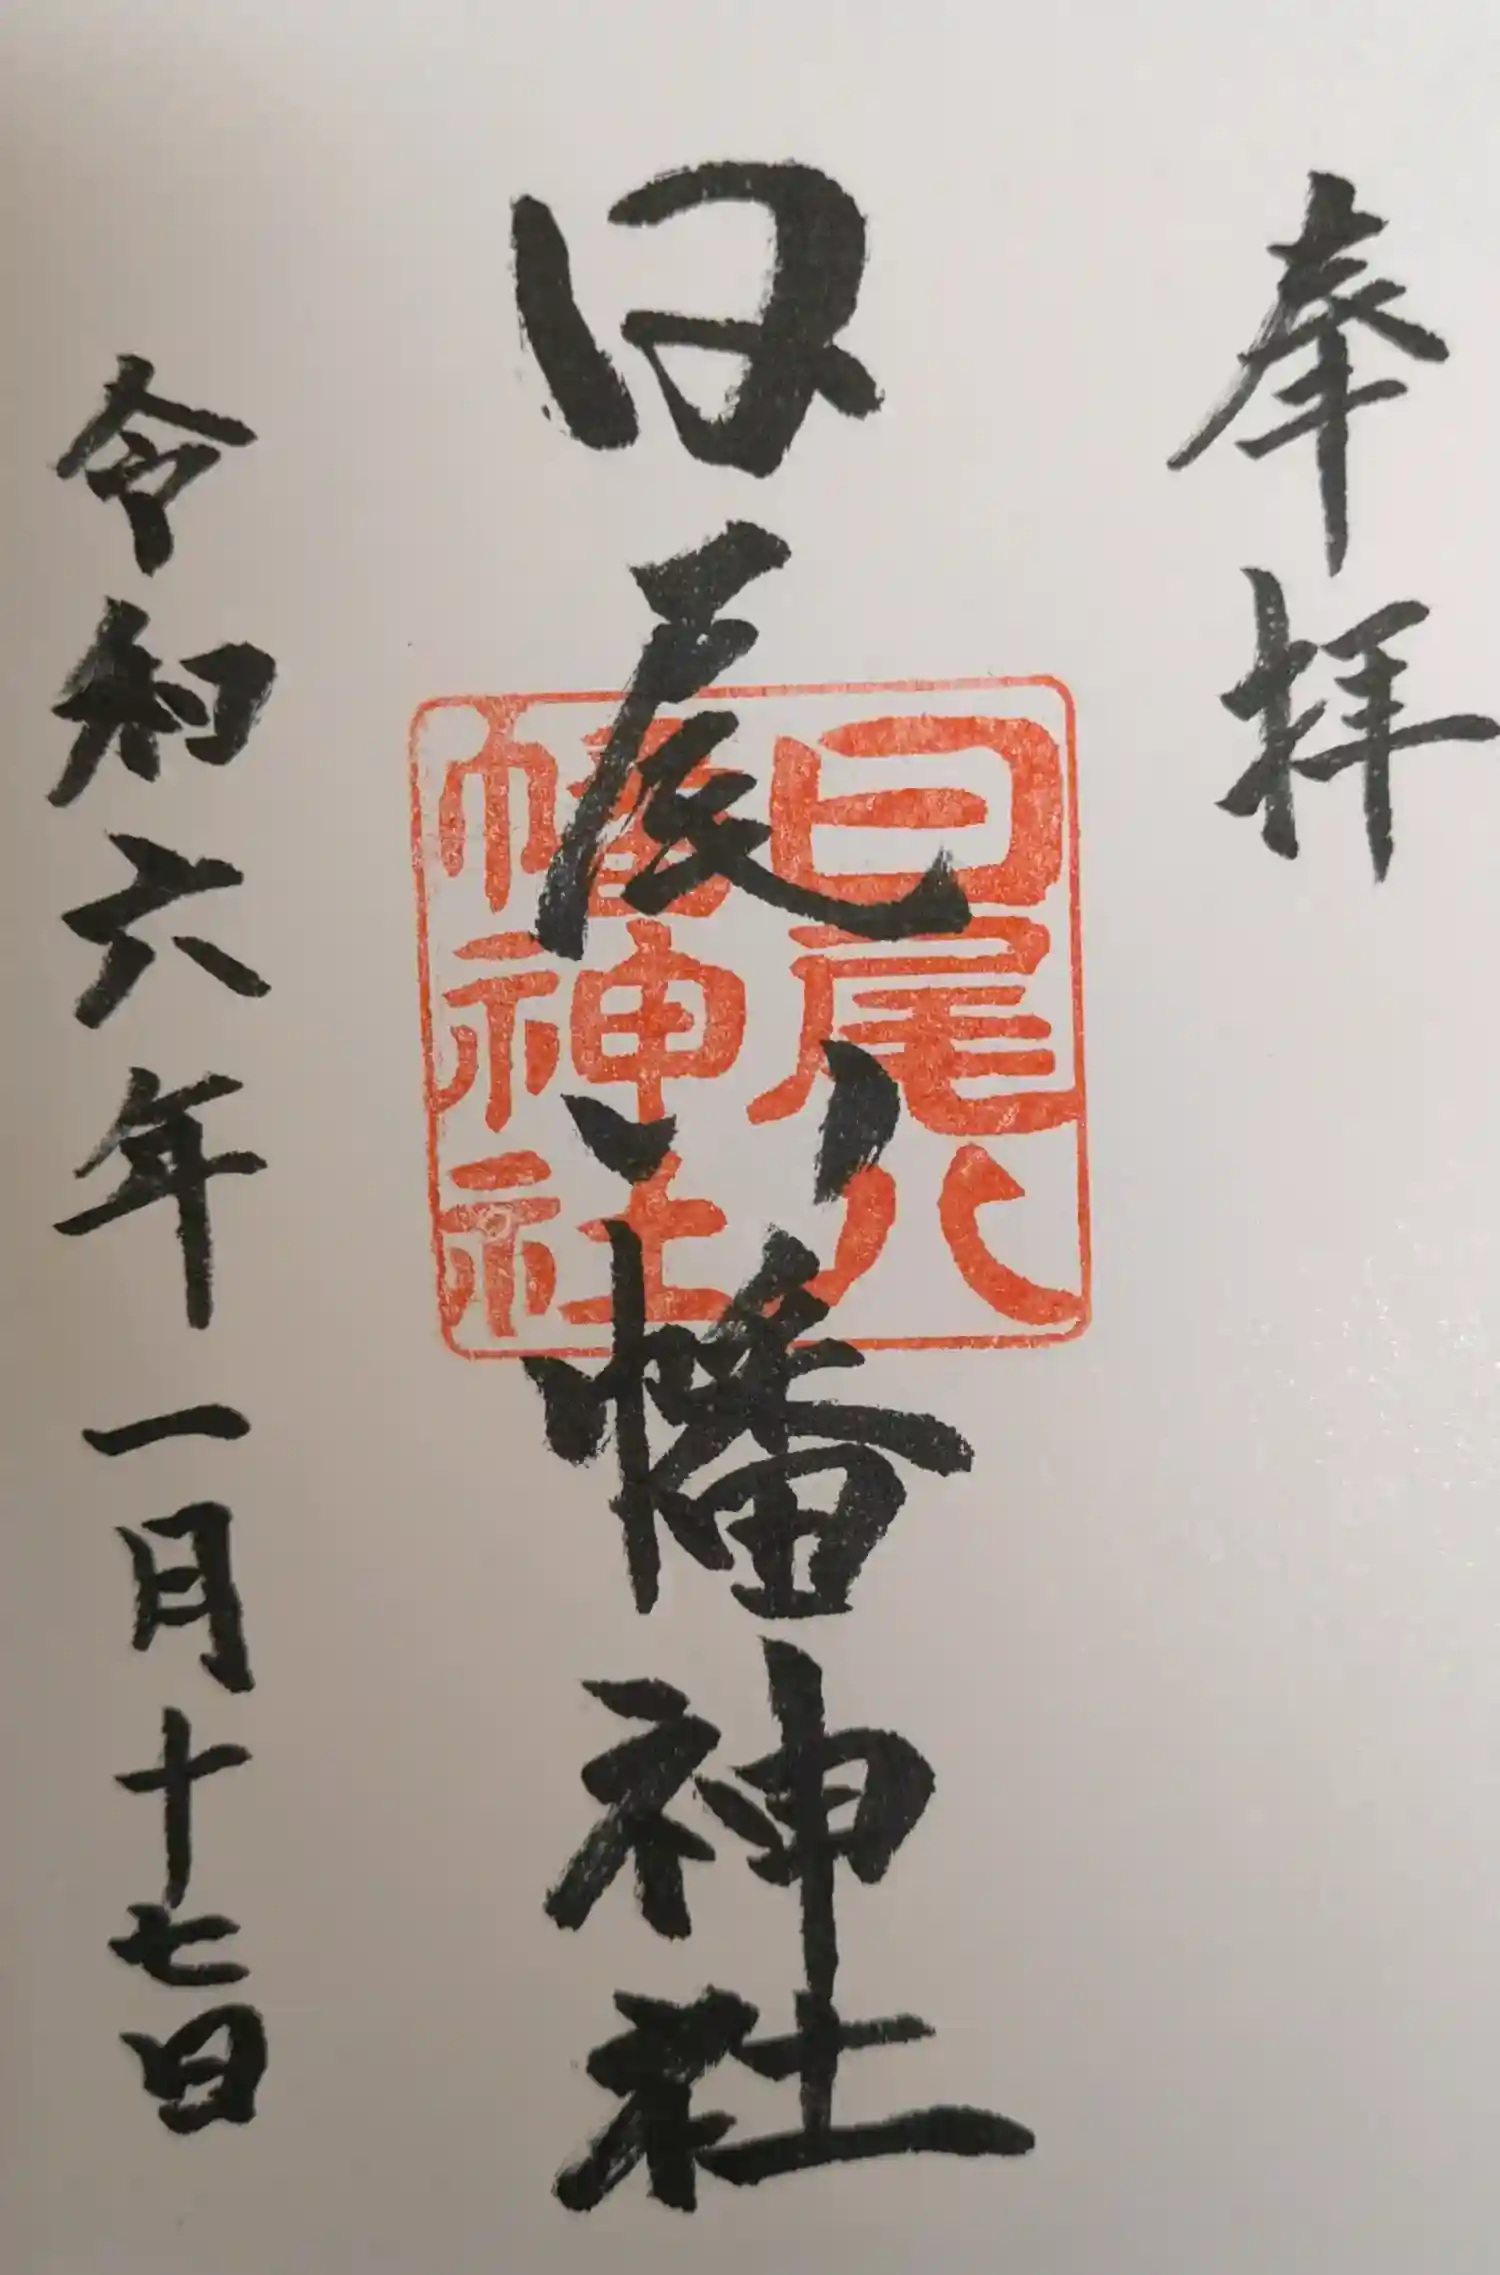 奉拝
日尾八幡神社
日尾八
幡神社
令和六年一月十七日